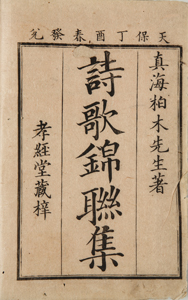 天保丁酉春發兌
真海柏木先生著
詩歌錦聯集
孝經堂藏梓